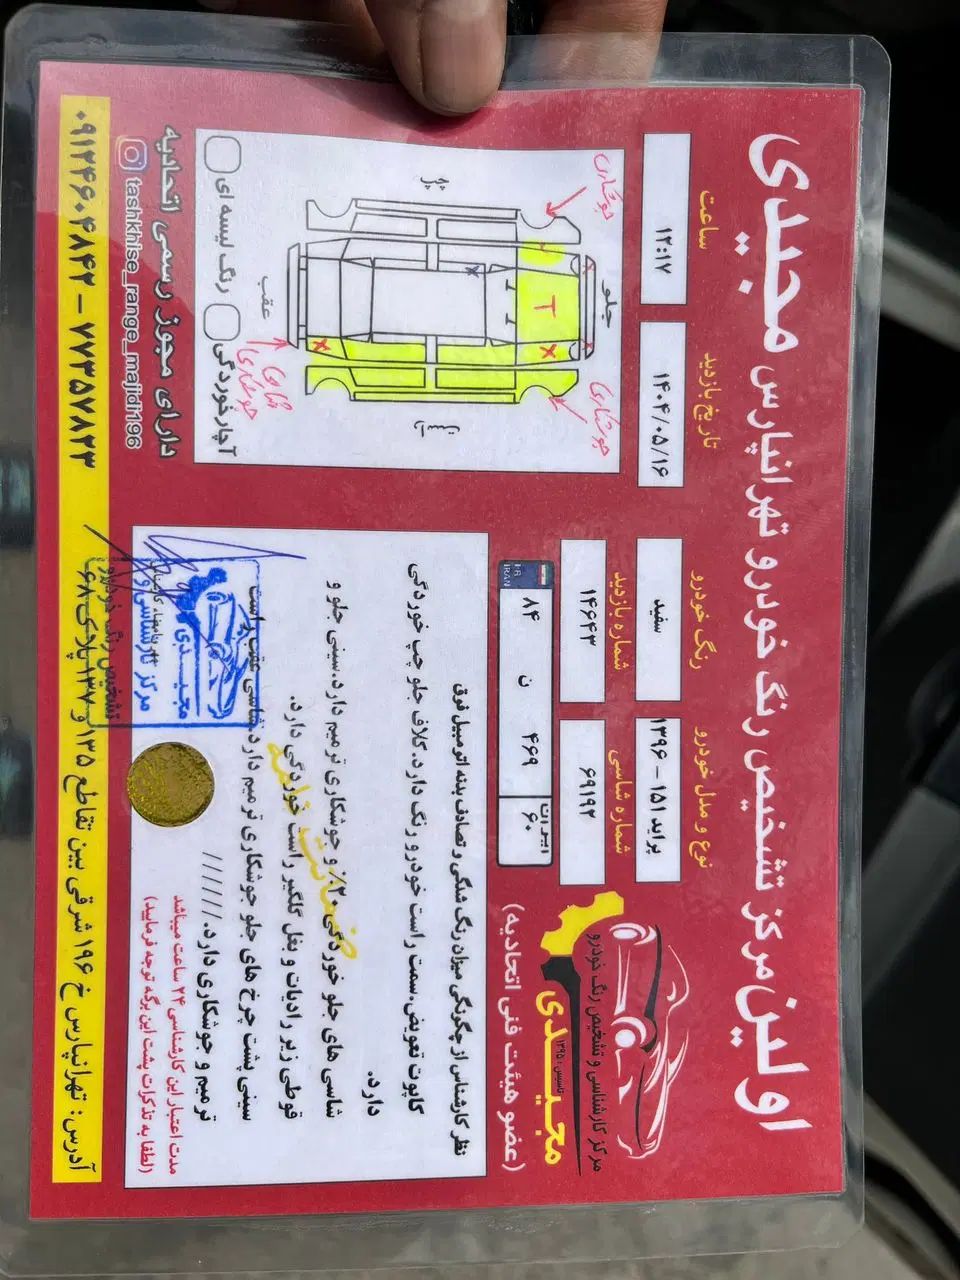 اولین مرکز تشخیص رنگ خودرو تهرانپارس مجیدی
نوع و مدل خودرو
پراید ۱۵۱ - ۱۳۹۶
رنگ خودرو
سفید
تاریخ بازدید
۱۴۰۴/۰۵/۱۶
ساعت
۱۲:۱۷
شماره شاسی
۶۹۱۹۲
شماره بازدید
۱۴۶۴۳
I.R.
IRAN
۸۴ ن ۴۶۹
ایران
۶۰
مرکز کارشناسی و تشخیص رنگ خودرو
مجیدی
تاسیس : ۱۳۹۵
(عضو هیئت فنی اتحادیه)
نظر کارشناس از چگونگی میزان رنگ شدگی و تصادف بدنه اتومبیل فوق
کاپوت تعویض.سمت راست خودرو رنگ دارد.گلاف جلو چپ خوردگی
دارد.
شاسی های جلو خوردگی ۲۰٪ و جوشکاری ترمیم دارد.سینی جلو و
قوطی زیر رادیات و بغل گلگیر راست خوردگی دارد.
سینی پشت چرخ های جلو جوشکاری ترمیم دارد.شاسی عقب راست
ترمیم و جوشکاری دارد.//////
مدت اعتبار این کارشناسی ۲۴ ساعت میباشد
(لطفا به تذکرات پشت این برگه توجه فرمایید)
مرکز کارشناسی و
مجیدی
تشخیص رنگ خودرو
جلو
عقب
چپ
راست
جوشکاری
جوشکاری
شاسی
جوشکاری
T
رنگ لیسه ای
آچارخوردگی
دارای مجوز رسمی اتحادیه
tashkhise_range_majidi196
آدرس: تهرانپارس خ ۱۹۶ شرقی بین تقاطع ۱۳۵ و ۱۳۷ پلاک ۶۸
۰۹۱۲۴۶۰۴۸۴۲ - ۷۷۳۵۷۸۲۳